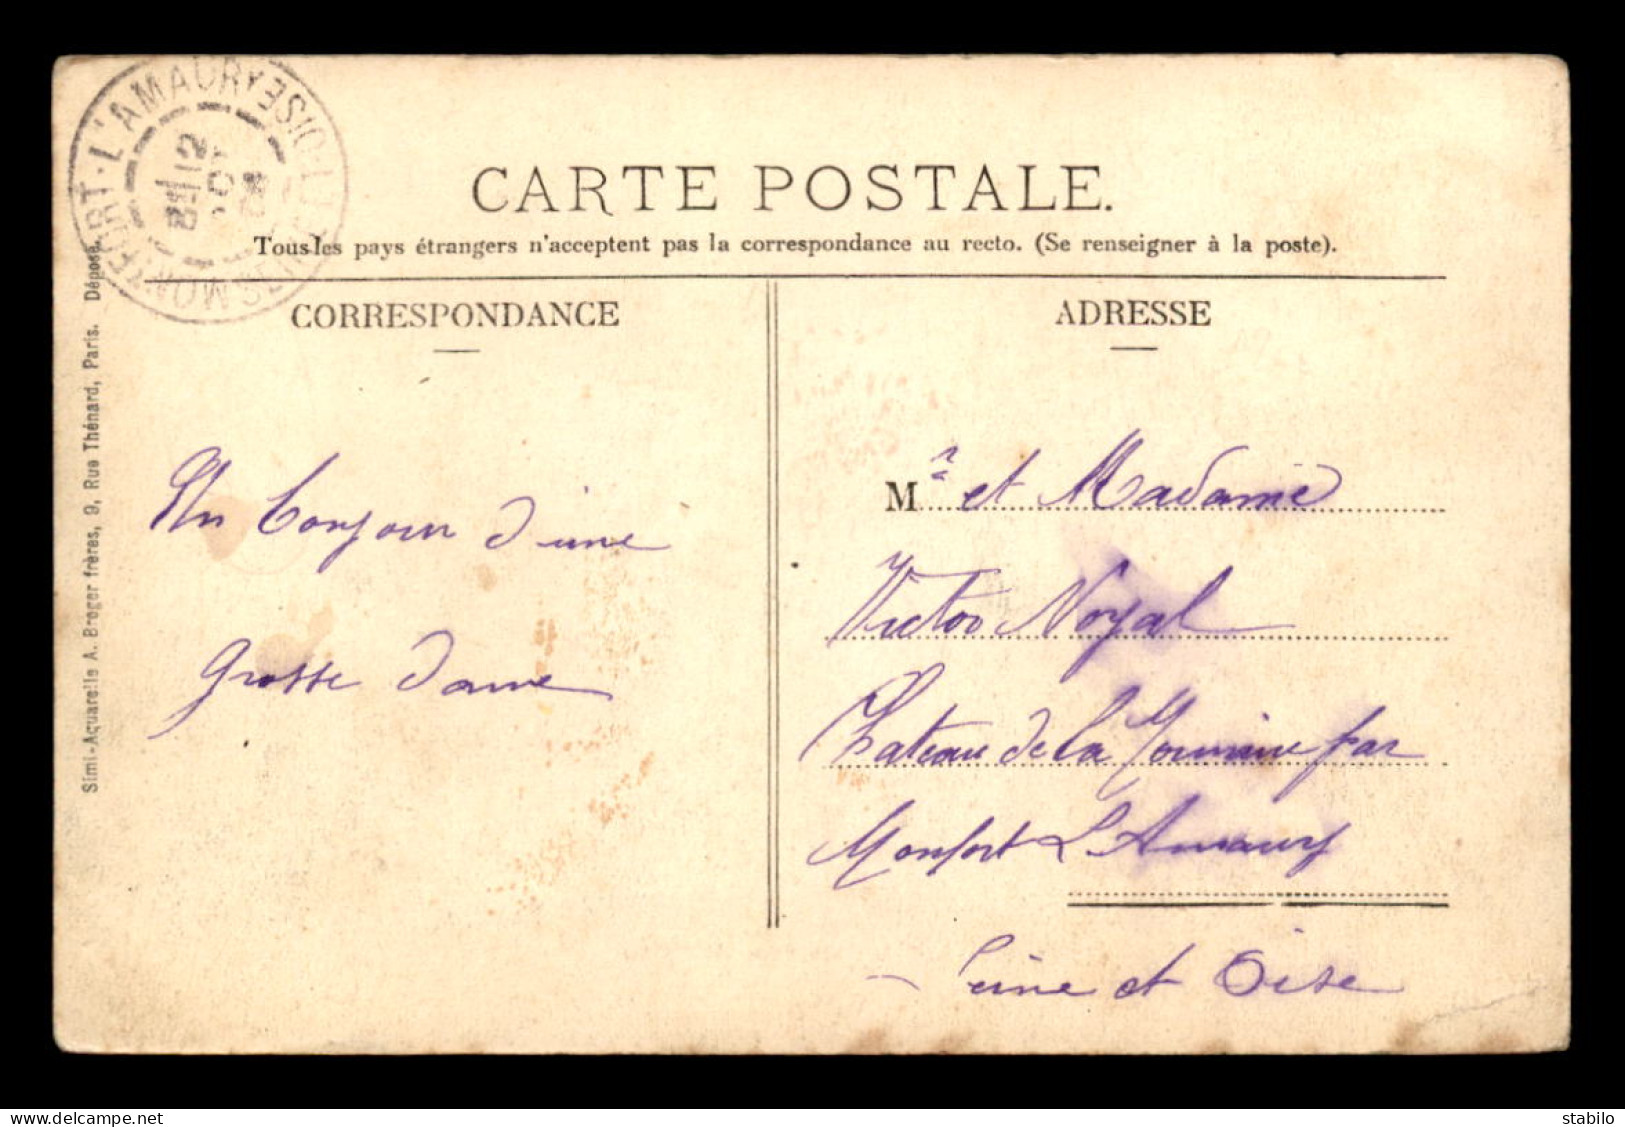 MONTFORT-L'AMAURY
12
CARTE POSTALE.
Tous les pays étrangers n'acceptent pas la correspondance au recto. (Se renseigner à la poste).
CORRESPONDANCE
Un bonjour d'une
grosse dame
ADRESSE
Mr et Madame
Victor Noyal
Chateau de la par
Monfort L'Amaury
Seine et Oise
Simi-Aquarelle A. Breger frères, 9, Rue Thénard, Paris. Déposé.
delcampe.net
stabilo